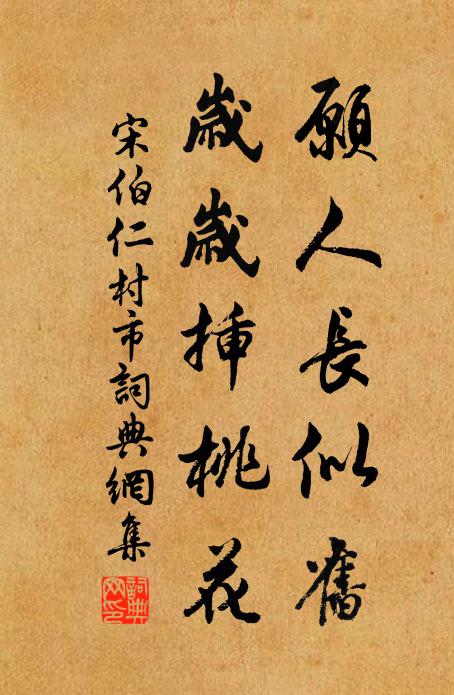 願人長似舊
歲歲插桃花
宋伯仁村市詞典網集
詞典網印